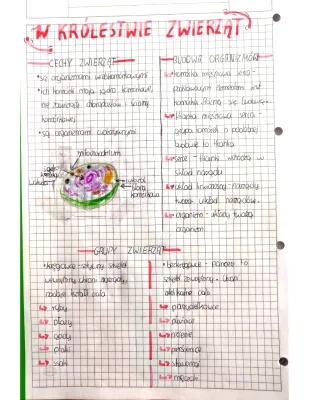 W KRÓLESTWIE ZWIERZĄT
CECHY ZWIERZĄT
• są organizmami wielokomórkowymi
• ich komórki mają jądro komórkowe,
nie zawierają chloroplastów i ściany
komórkowej
• są organizmami cudzożywnymi
mitochondrium
jądro
cytozol
błona
komórkowa
BUDOWA ORGANIZMÓW
komórka mięśniowa serca -
podstawowym elementem jest
komórka
tkanka mięśniowa serca -
grupa komórek o podobnej
budowie to tkanka
serce - tkanki wchodzą w
skład narządu
układ krwionośny - narządy
tworzą układ narządów
organizm - układy tworzą
organizm
GRUPY ZWIERZĄT
• kręgowce - sztywny szkielet
wewnętrzny chroni narządy,
nadaje kształt ciała
ryby
płazy
gady
ptaki
ssaki
• bezkręgowce - pancerz to
szkielet zewnętrzny. Chroni
delikatne ciało
parzydełkowce
płazińce
nicienie
pierścienice
stawonogi
mięczaki